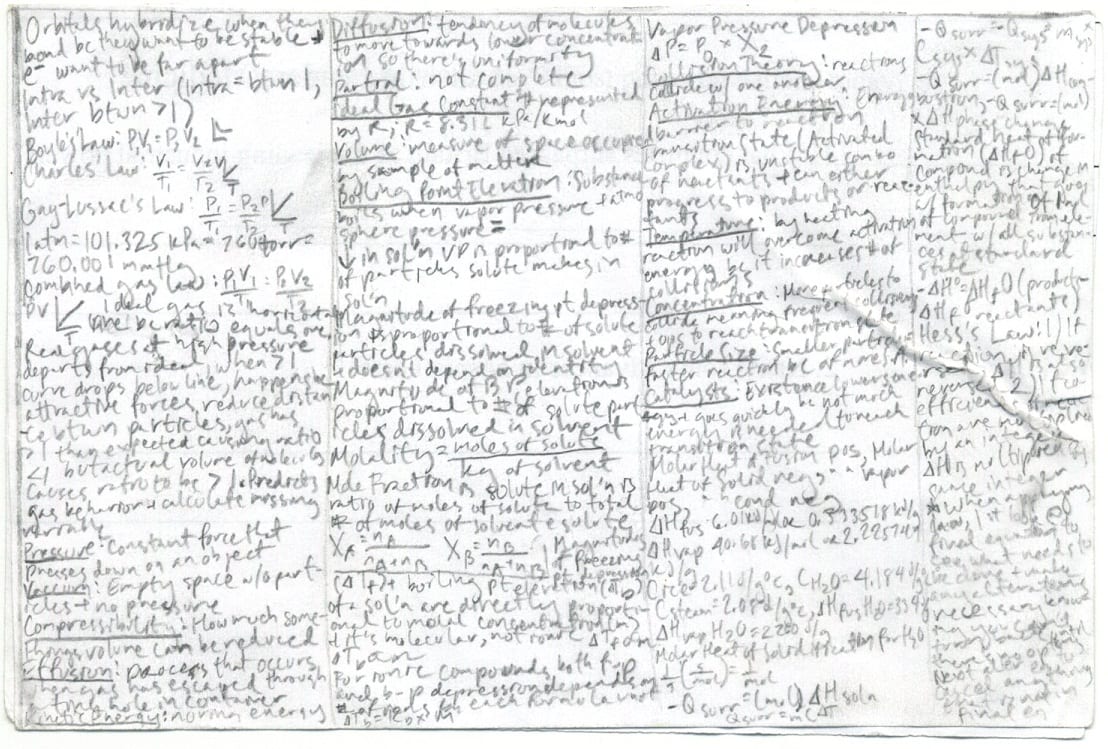 Orbitals hybridize when they
bond bc they want to be stable +
e⁻ want to be far apart
Intra vs Inter (intra = btwn 1,
Inter btwn >1)
Boyle's Law: P₁V₁=P₂V₂
Charles Law: V₁/T₁ = V₂/T₂ V T
Gay-Lussac's Law: P₁/T₁ = P₂/T₂ P T
1 atm = 101.325 kPa = 760 torr =
760.001 mmHg
Combined gas law: P₁V₁/T₁ = P₂V₂/T₂
PV T Ideal gas is horizontal
line bc ratio equals one
Real gases at high pressure
departs from ideal, when >1
curve drops below line, happens bc
attractive forces reduce distan-
ce btwn particles, gas has
>1 than expected causing ratio
<1 but actual volume of molecules
causes ratio to be >1. Predicts
gas behavior + calculate missing
variable
Pressure: Constant force that
presses down on an object
Vacuum: Empty space w/o part-
icles + no pressure
Compressibility: How much some-
things volume can be reduced
Effusion: process that occurs
when gas has escaped through
tiny hole in container
Kinetic Energy: normal energy
Diffusion: tendency of molecules
to move towards lower concentrat-
ion so there's uniformity
Partial: not complete
Ideal Gas Constant: # represented
by R; R = 8.31 L kPa/K mol
Volume: measure of space occupied
by sample of matter
Boiling Point Elevation: Substance
boils when vapor pressure = atmo
sphere pressure
↓ in sol'n VP is proportional to #
of particles solute makes in
sol'n
Magnitude of freezing pt depress-
ion is proportional to # of solute
particles dissolved in solvent
+ doesn't depend on identity
Magnitude of B.P. elevation is
proportional to # of solute part
icles dissolved in solvent
Molality = moles of solute / kg of solvent
Mole Fraction is solute in sol'n is
ratio of moles of solute to total
# of moles of solvent + solute
X_A = n_A / n_A+n_B X_B = n_B / n_A+n_B Magnitudes
of freezing pt depression
(ΔTf) + boiling pt elevation (ΔTb)
of a sol'n are directly proportion-
al to molal concentration (m)
if it's molecular, not ionic ΔT
For ionic compounds both f-p
and b-p depression depends on
# of ions for each formula unit
Vapor Pressure Depression
ΔP = P₀ × X₂
Collision Theory: reactions
collide w/ one another
Activation Energy: Energy
barrier to reaction
Transition State (Activated
Complex) is unstable combo
of reactants + can either
progress to products or reac-
tants
Temperature: by heating
reaction will overcome activation
energy bc it increases # of
collisions
Concentration: More particles to
collide meaning
+ ops to reach transition state
Particle Size: Smaller particles
faster reaction bc of more
Catalysts: Existence lowers ener-
gy + goes quickly bc not much
energy is needed to reach
transition state
Molar Heat of fusion pos, Molar
Heat of solid neg, " " vapor
pos, " cond neg
ΔHfus 6.01 kJ/mol
ΔHvap 40.68 kJ/mol
Cice = 2.1 J/g°C, CH₂O = 4.184 J/g
Csteam = 2.08 J/g°C, ΔHfus H₂O = 334 J/g
ΔHvap H₂O = 2260 J/g
Molar Heat of solid
-Qsurr = (mol) ΔHsoln
Qsurr = mCΔT
-Qsurr = -Qsys m sys ×
Csys × ΔTsys
-Qsurr = (mol) ΔHcom-
bustion, -Qsurr = (mol)
× ΔH phase change
Standard heat of for-
mation (ΔHf0) of
compound is change in
enthalpy that goes
w/ formation of 1 mol
of compound from ele-
ment w/ all substan-
ces at standard
state
-ΔH° = ΔHf0 (products-
ΔHf reactants)
Hess's Law: 1) If
reaction is reve-
rsed ΔH is also
reversed 2) if co-
efficients in reac-
tion are multiplied
by an integer
ΔH is multiplied by
same integer
* when applying
law, look @
final equation to
see what needs to
be done + make
any alterations
necessary
final eq